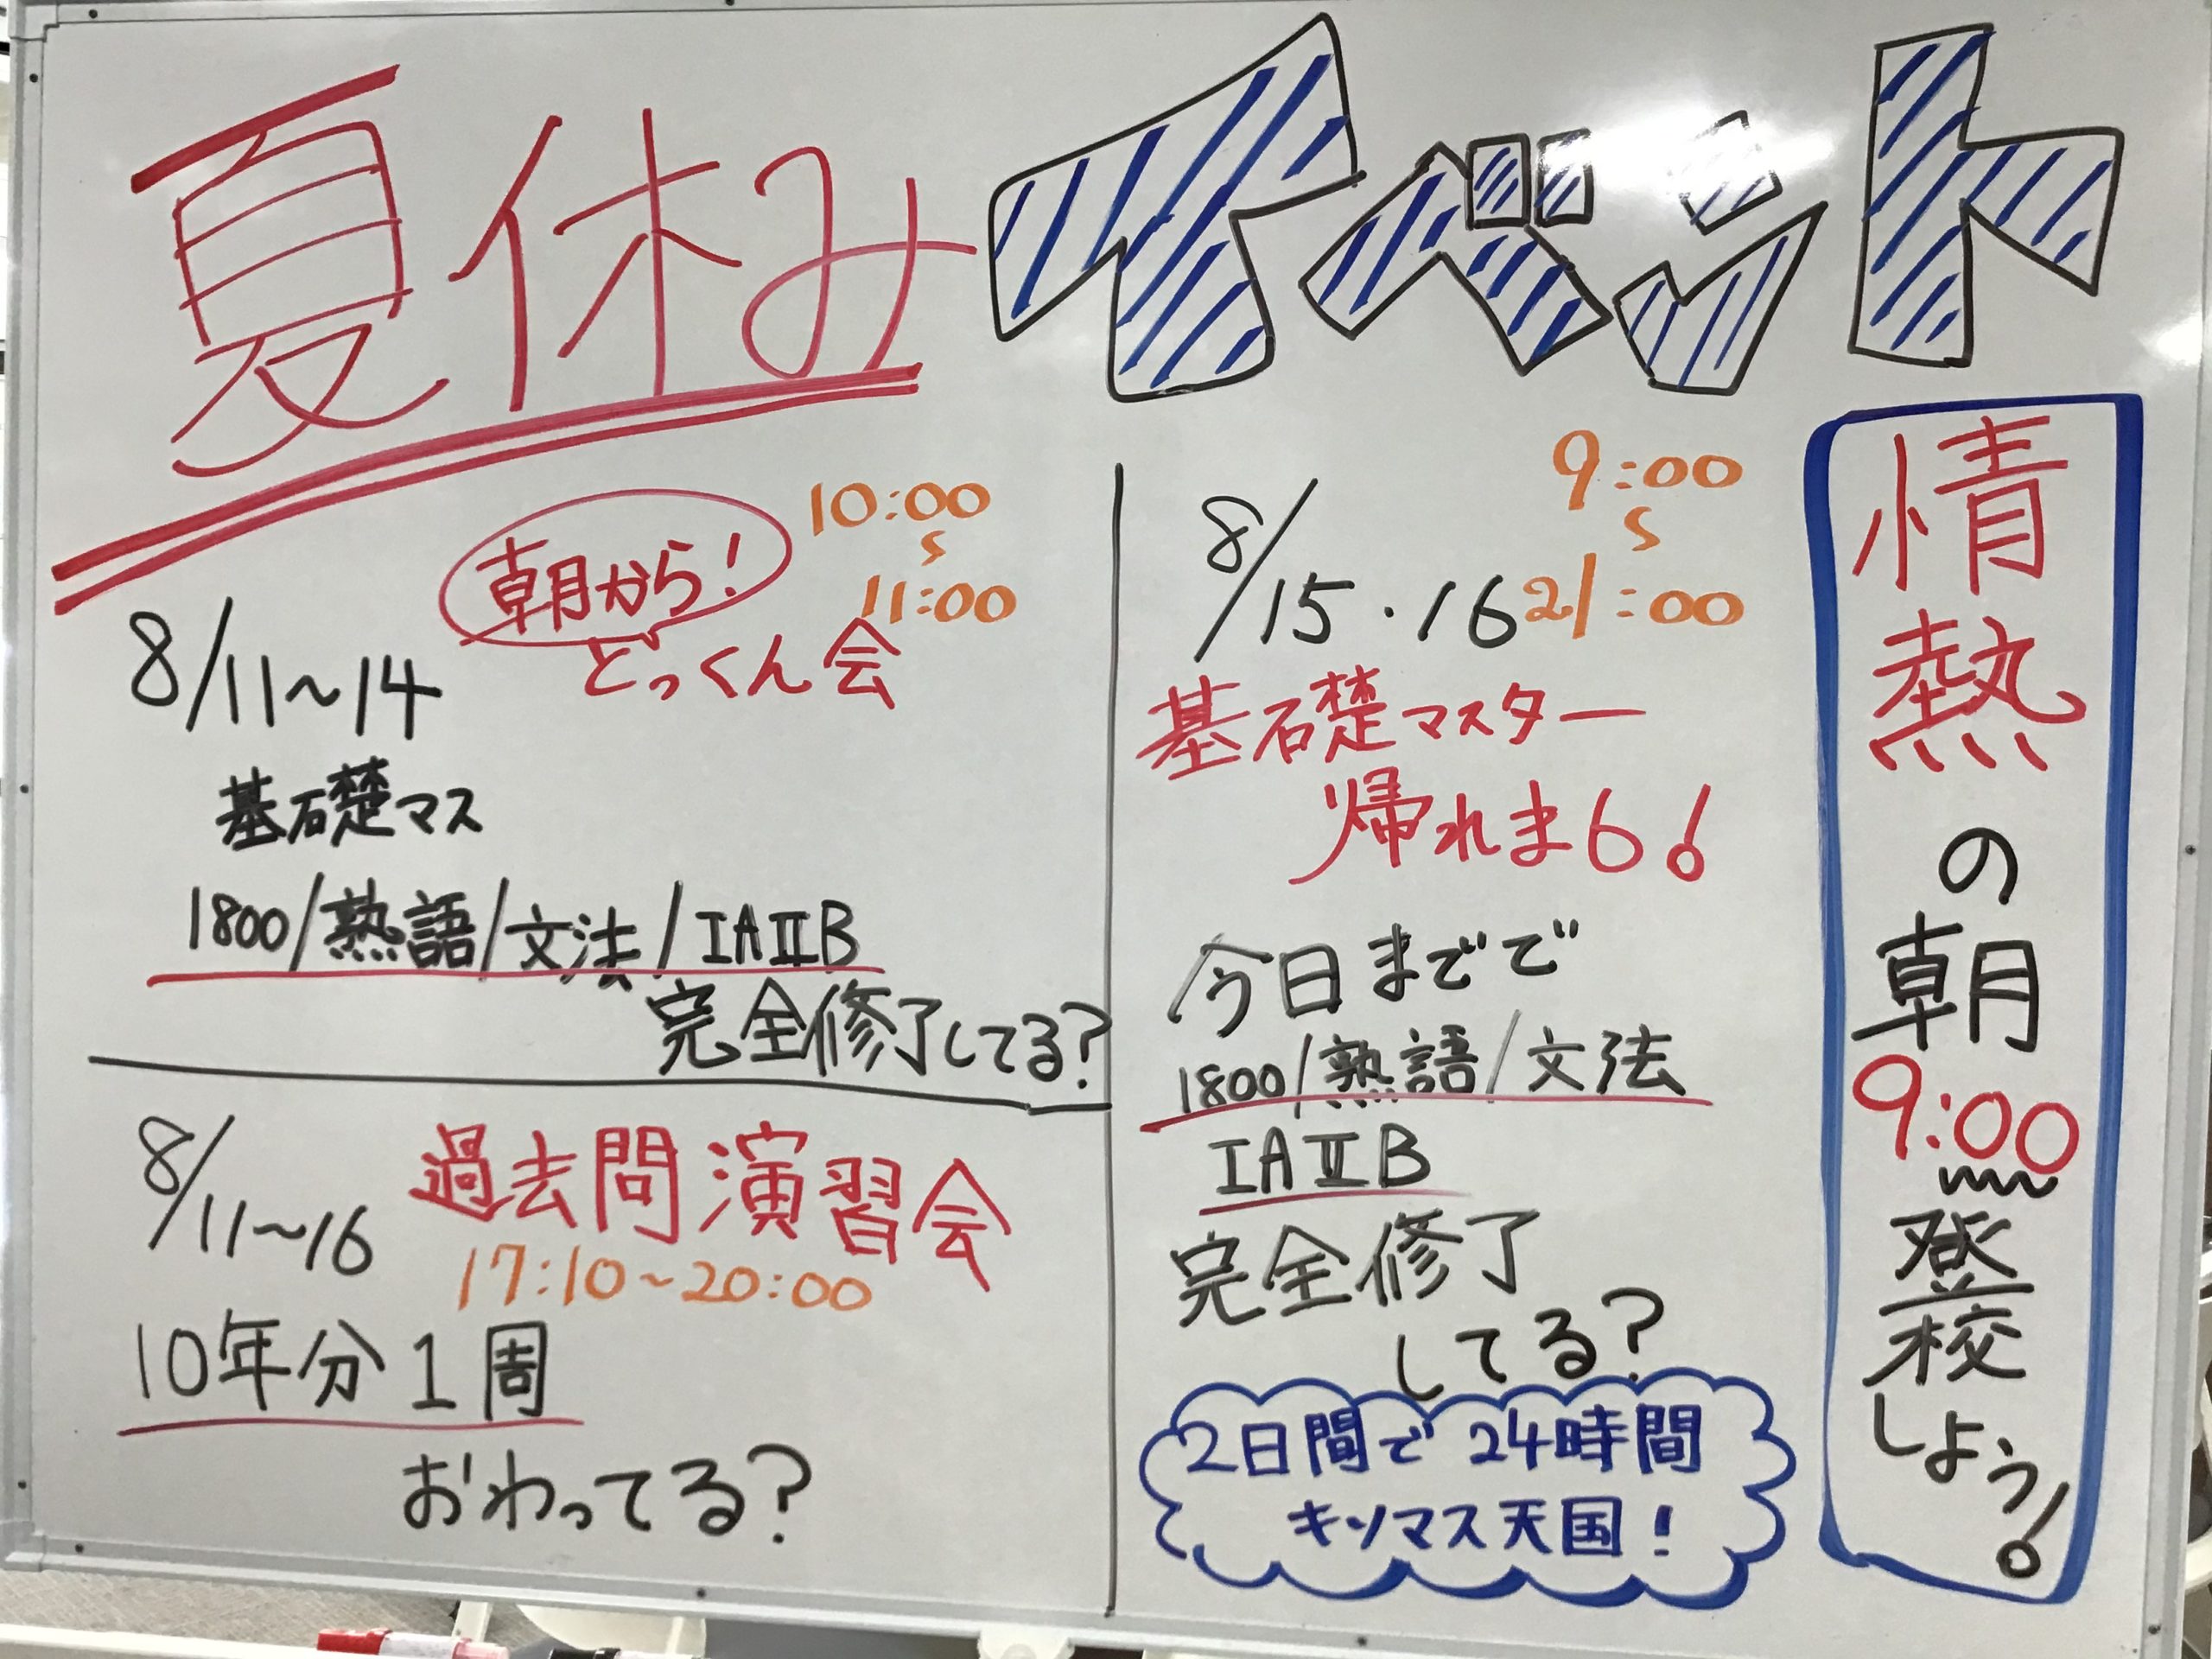 夏休みイベント
朝から!
10:00
~
11:00
どっくん会
8/11~14
基礎マス
1800/熟語/文法/ⅠAⅡB
完全修了してる?
8/11~16
過去問演習会
17:10~20:00
10年分1周
おわってる?
9:00
~
21:00
8/15・16
基礎マスター
帰れま6!
今日までで
1800/熟語/文法
ⅠAⅡB
完全修了
してる?
2日間で24時間
キソマス天国!
情熱の朝9:00登校しよう!